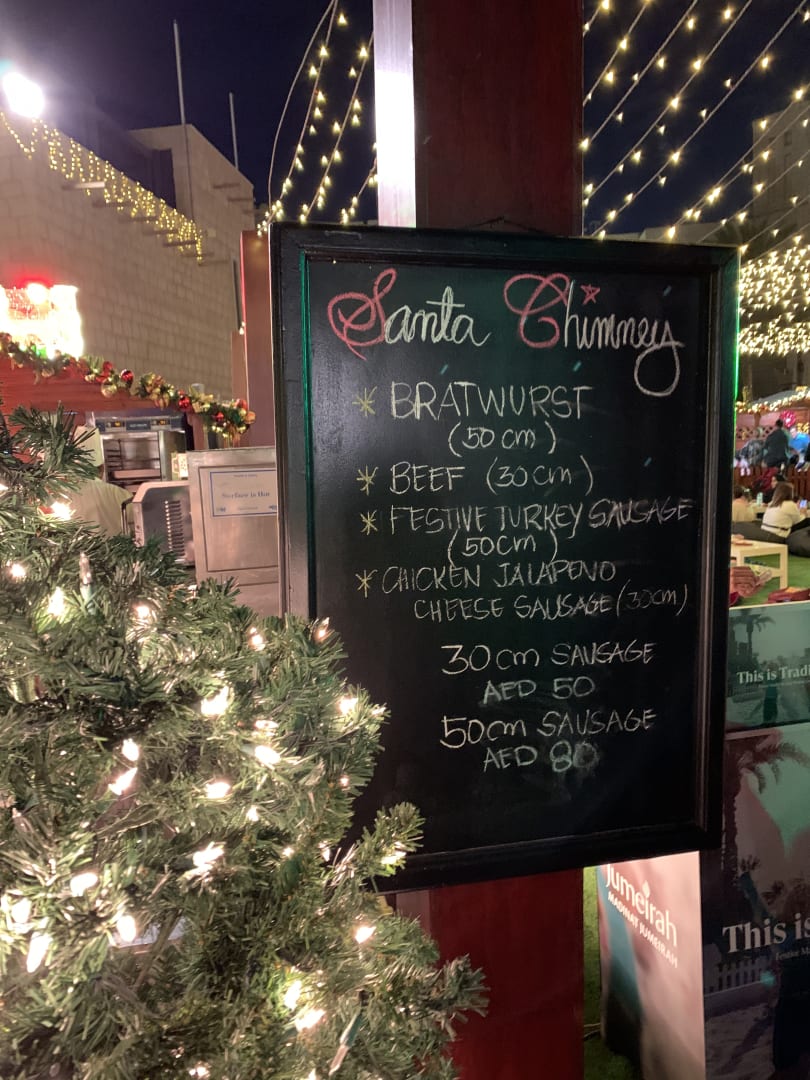 Santa Chimney
* BRATWURST
(50 cm)
* BEEF (30 cm)
* FESTIVE TURKEY SAUSAGE
(50 cm)
* CHICKEN JALAPENO
CHEESE SAUSAGE (30cm)
30 cm SAUSAGE
AED 50
50cm SAUSAGE
AED 80
Surface is Hot
This is Tradi
Jumeirah
MADINAT JUMEIRAH
This is
Festive Ma